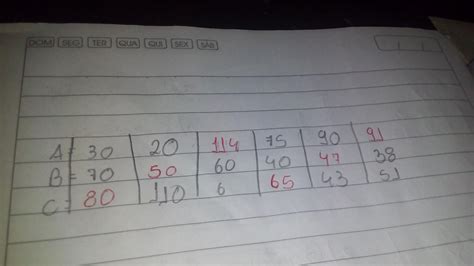 DOM SEG TER QUA QUI SEX SÁB
A= 30 20 114 75 90 91
B= 70 50 60 40 47 38
C= 80 110 6 65 43 51